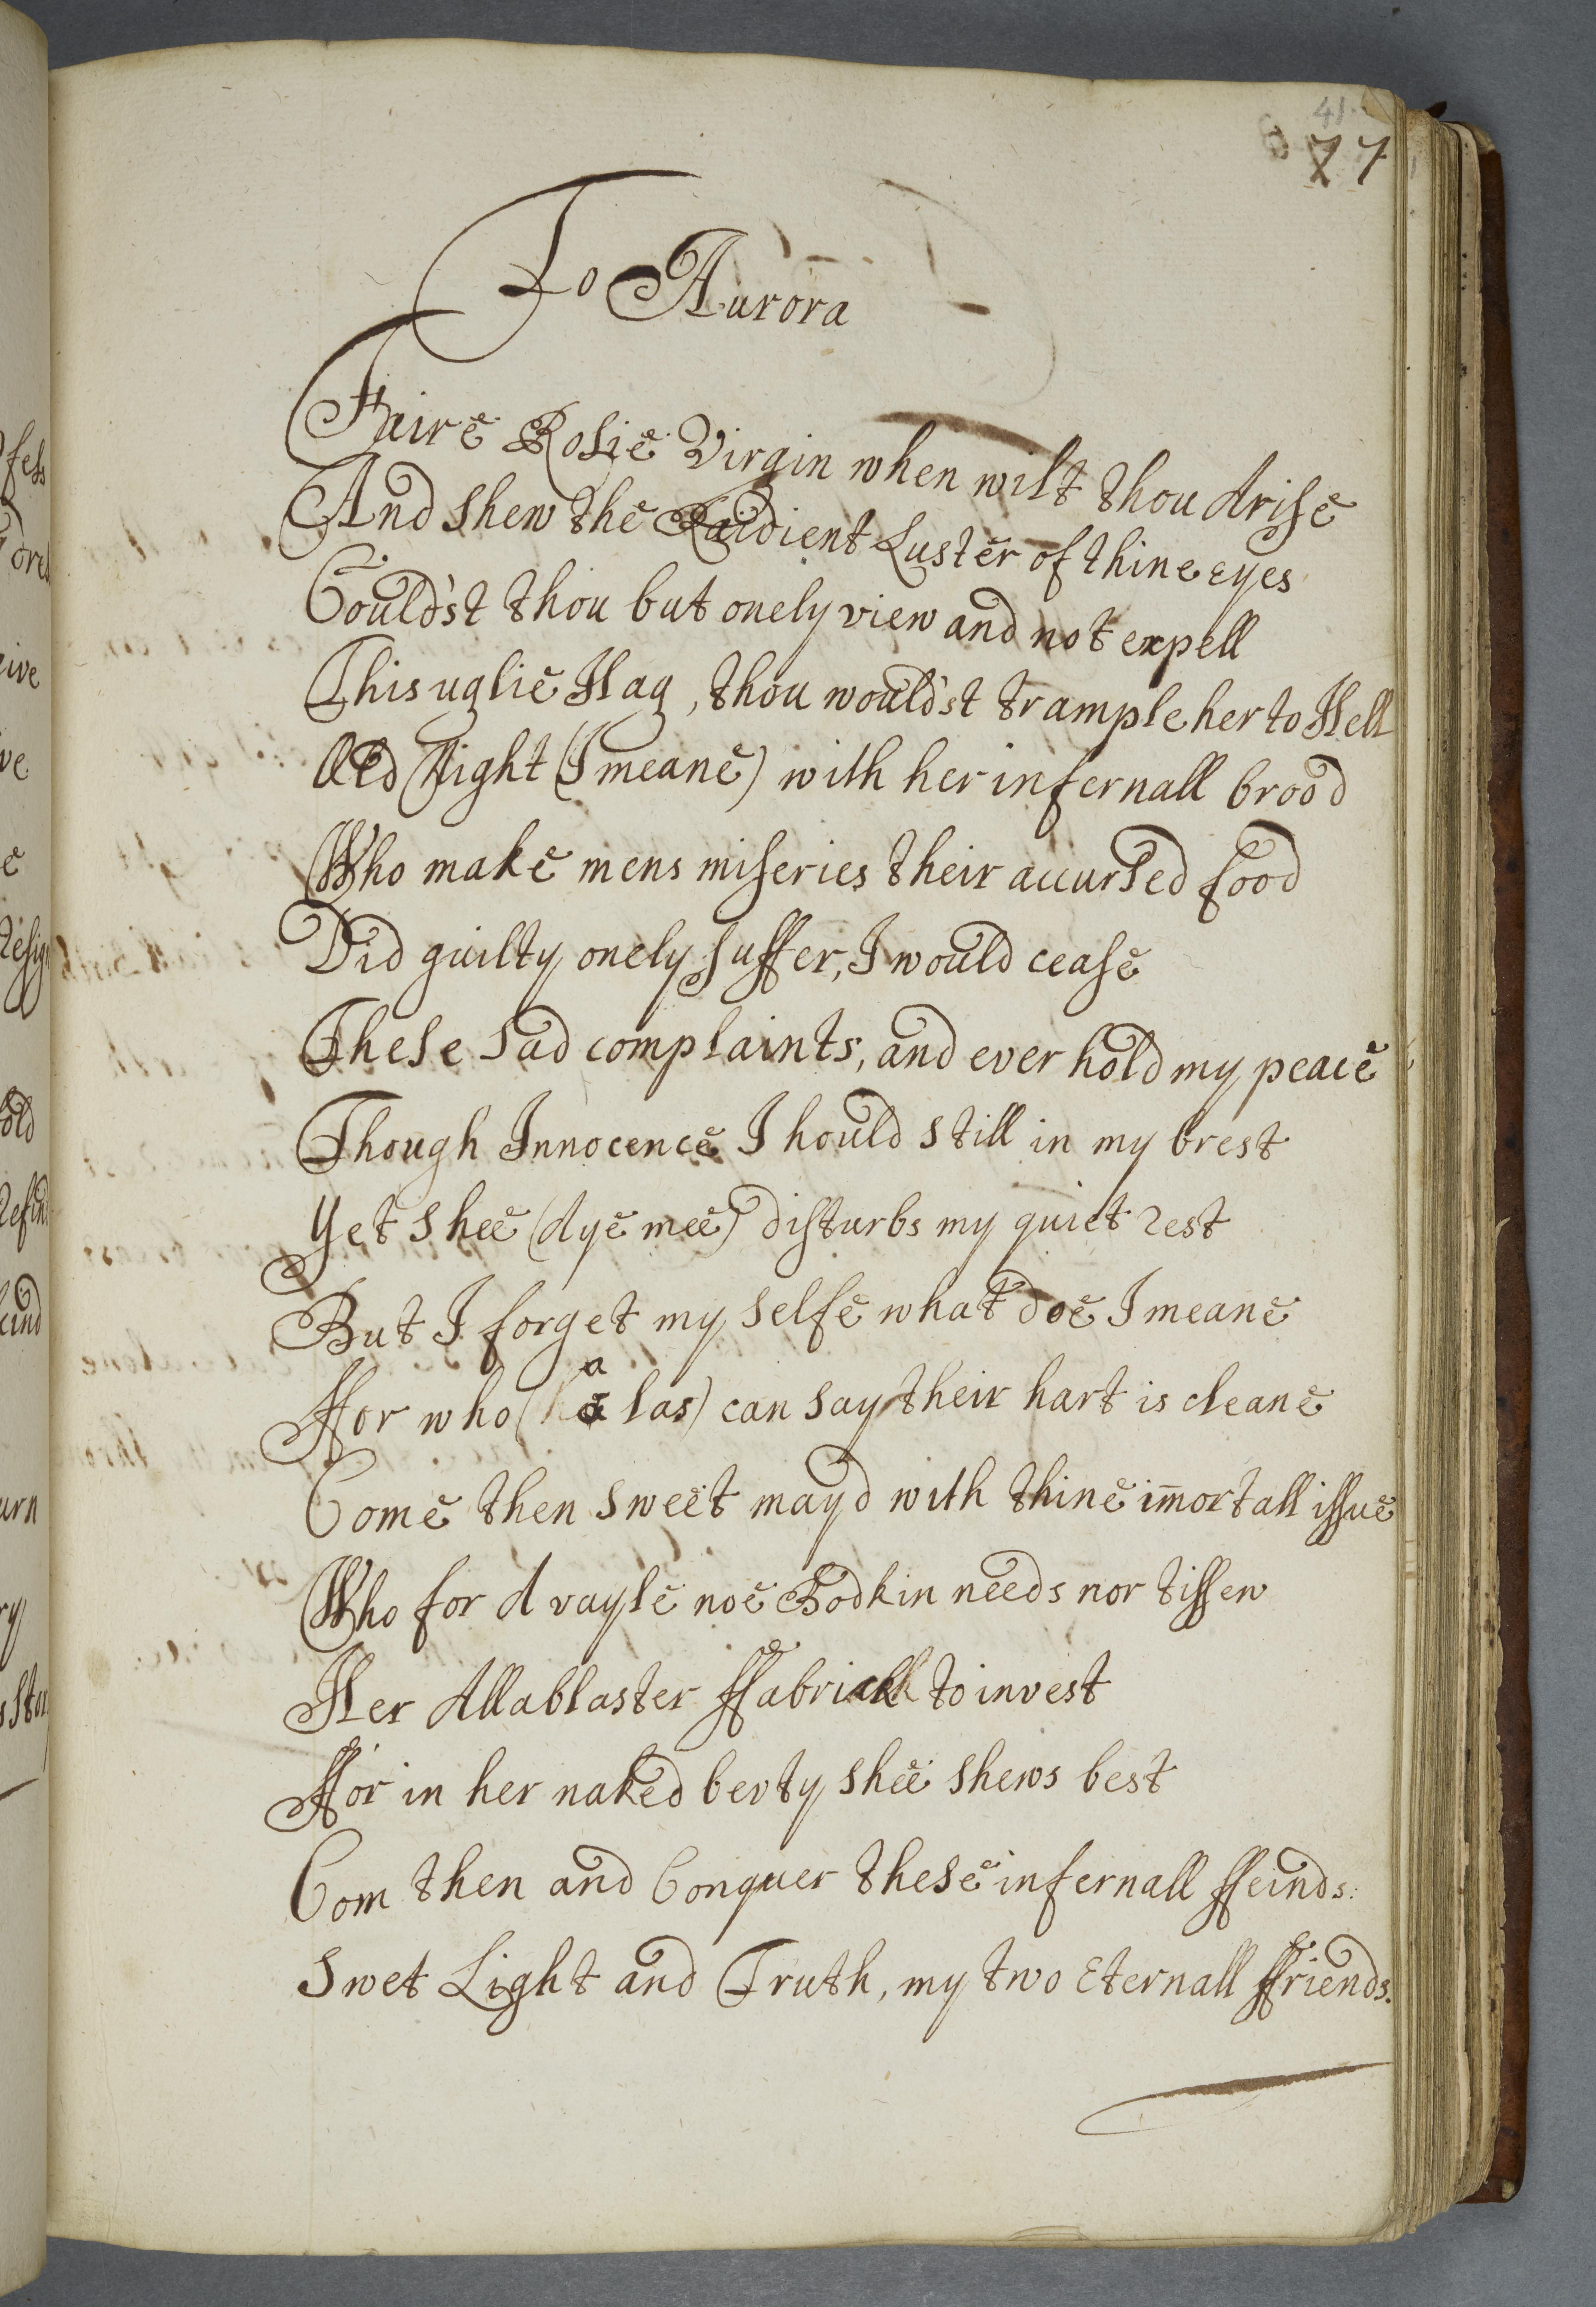 41
77
To Aurora
Faire Rosie Virgin when wilt thou Arise
And shew the Raidient Luster of thine eyes
Could'st thou but onely view and not expell
This uglie Hag, thou would'st trample her to Hell
Old Night (I meane) with her infernall brood
Who make mens miseries their accursed food
Did guilty onely suffer, I would cease
These sad complaints, and ever hold my peace
Though Innocence I hould still in my brest
Yet shee (Aye mee) disturbs my quiet rest
But I forget my selfe what doe I meane
a
ffor who (a las) can say their hart is cleane
Come then sweet mayd with thine im̄ortall issue
Who for A vayle noe Bodkin needs nor tissew
Her Allablaster ffabrick to invest
ffor in her naked bevty shee shews best
Com then and Conquer these infernall ffeinds:
Swet Light and Truth, my two Eternall ffriends.